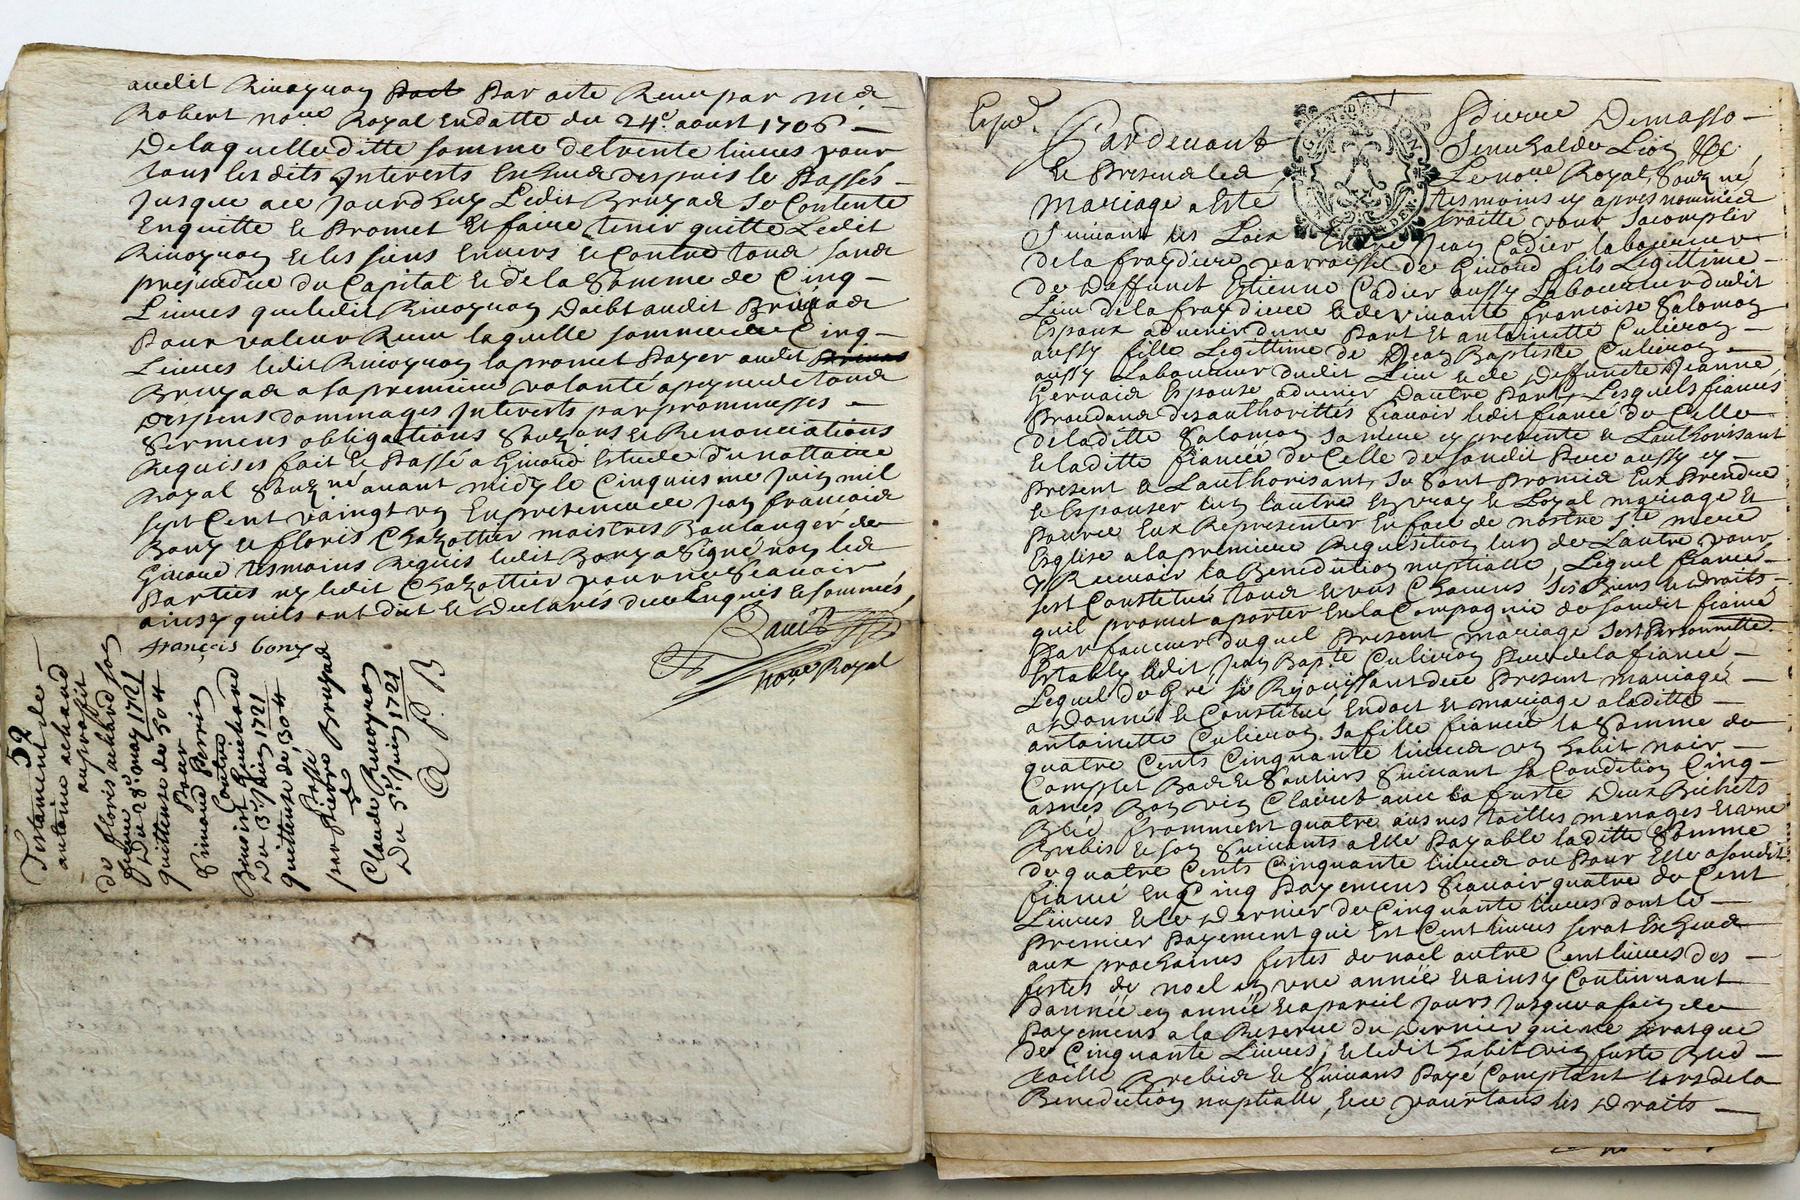 audit Rivoyron Par acte Receu par me
Robert nore Royal En datte du 24e. aoust 1706 —
De laquelle ditte somme de trente livres pour
tous lesdits Interests Escheus despuis le Passés
Jusque a ce Jourdhuy Ledit Bruyas Se Contente
Enquitte Et Promet Et faire tenir quitte Ledit
Rivoyron Et les siens Envers Et Contre tous sans
prejudice du Capital Et de la Somme de Cinq —
Livres que ledit Rivoyron Doibt audit Bruyas
Pour valeur Receu laquelle somme de Cinq —
Livres ledit Rivoyron la promet Payer audit
Bruyas a sa premiere volonté a peyne de tous
Despens dommages Interests par prommesses —
Serments obligations Et Renonciations
Requises fait Et Passé a Givord Estude du nottaire
Royal Souzné avant midy le Cinquiesme Juin mil
sept Cent vaingt un En presence de Jean francois
Bony Et floris Chazottier maistres Boulanger de
Givord tesmoins Requis ledit Bony a Signé non les
Parties ny ledit Chazottier pour ne Scavoir
ainsy quils ont dit Et Declarés de ce Enquis Et sommés
françois bony
nore Royal
52
Testament de —
antoine achard
au proffit
de floris achard son
Du 28e. may 1721
quittense de 50 #
Pour
Simond Perrin
Contre
Benoist Guichard
Du 3e Juin 1721
quittense de 30 #
passé
par Pierre Bruyas
a
Claude Rivoyron
Du 5e. Juin 1721
Exped.
Pardevant Pierre Demasso —
Senechal de Lion
Le nore Royal Souzné
Et Presens les tesmoins cy apres nommés
mariage a Esté traitté pour Sacomplir
Suivant les Loix Entre Jean Cadier laboureur
de la fraydiere parroisse de Givord fils Legittime —
De Deffunct Etienne Cadier aussy Laboureur dudit
Lieu de la fraydiere Et de vivante francoise Salomon
Espoux advenir dune Part Et antoinette Culieron —
aussy fille Legittime de Jean Baptiste Culieron —
aussy Laboureur dudit Lieu Et de Deffuncte Jeanne
Gervais Espouse advenir Dautre Part, Lesquels fiancés
Procedans des authorittés Scavoir ledit fiancé de Celle
de laditte Salomon Sa mere cy presente Et Lauthorisant
Et laditte fiancée de Celle de Sondit Pere aussy cy —
Present Et Lauthorisant, Se Sont Promis Eux Prendre
Et Espouser lun lautre En vray Et Loyal mariage Et
Pource Eux Representer En face de nostre Ste mere
Esglise a la premiere Requisition lun de Lautre pour
y Recevoir la Benediction nuptialle, Lequel fiancé
sest Constitué tous Et uns Chacuns Ses Biens Et droits
quil promet aporter En la Compagnie de Sondit fiancé
Par faveur duquel Present mariage Sest Personnellet.
Estably ledit Jean Bapte Culieron Pere de la fiancée —
Lequel de Gré Se Rejouissant duce Present mariage —
a Donné Et Constitué En dot Et mariage a laditte
antoinette Culieron Sa fille fiancée la Somme de
quatre Cents Cinquante livres un habit noir —
Complet Bas Et Soulliers Suivant Sa Condition Cinq —
asnés Bon vin Clairet avec la futte Deux Bichets
Bled fromment quatre ausnes toilles menages Et une
Brebis Et Son Suivants a Elle Payable laditte Somme
de quatre Cents Cinquante livres ou Pour Elle a Sondit
fiancé En Cinq Payemens Scavoir quatre de Cent
Livres Et le Dernier de Cinquante livres dont le —
Premier Payement qui Est Cent livres serat Escheus
aux prochaines festes de noel autre Cent livres des —
festes de noel En une année Et ainsy Continuant
Dannée en année Et a pareil Jours Jusque a fain de
Payemens a la Reserve du Dernier qui ne serat que
de Cinquante Livres, Et ledit habit vin futte Bled —
toille Brebis Et Suivans Payé Comptant lors de la
Benediction nuptialle, Et ce pour tous les Droits —